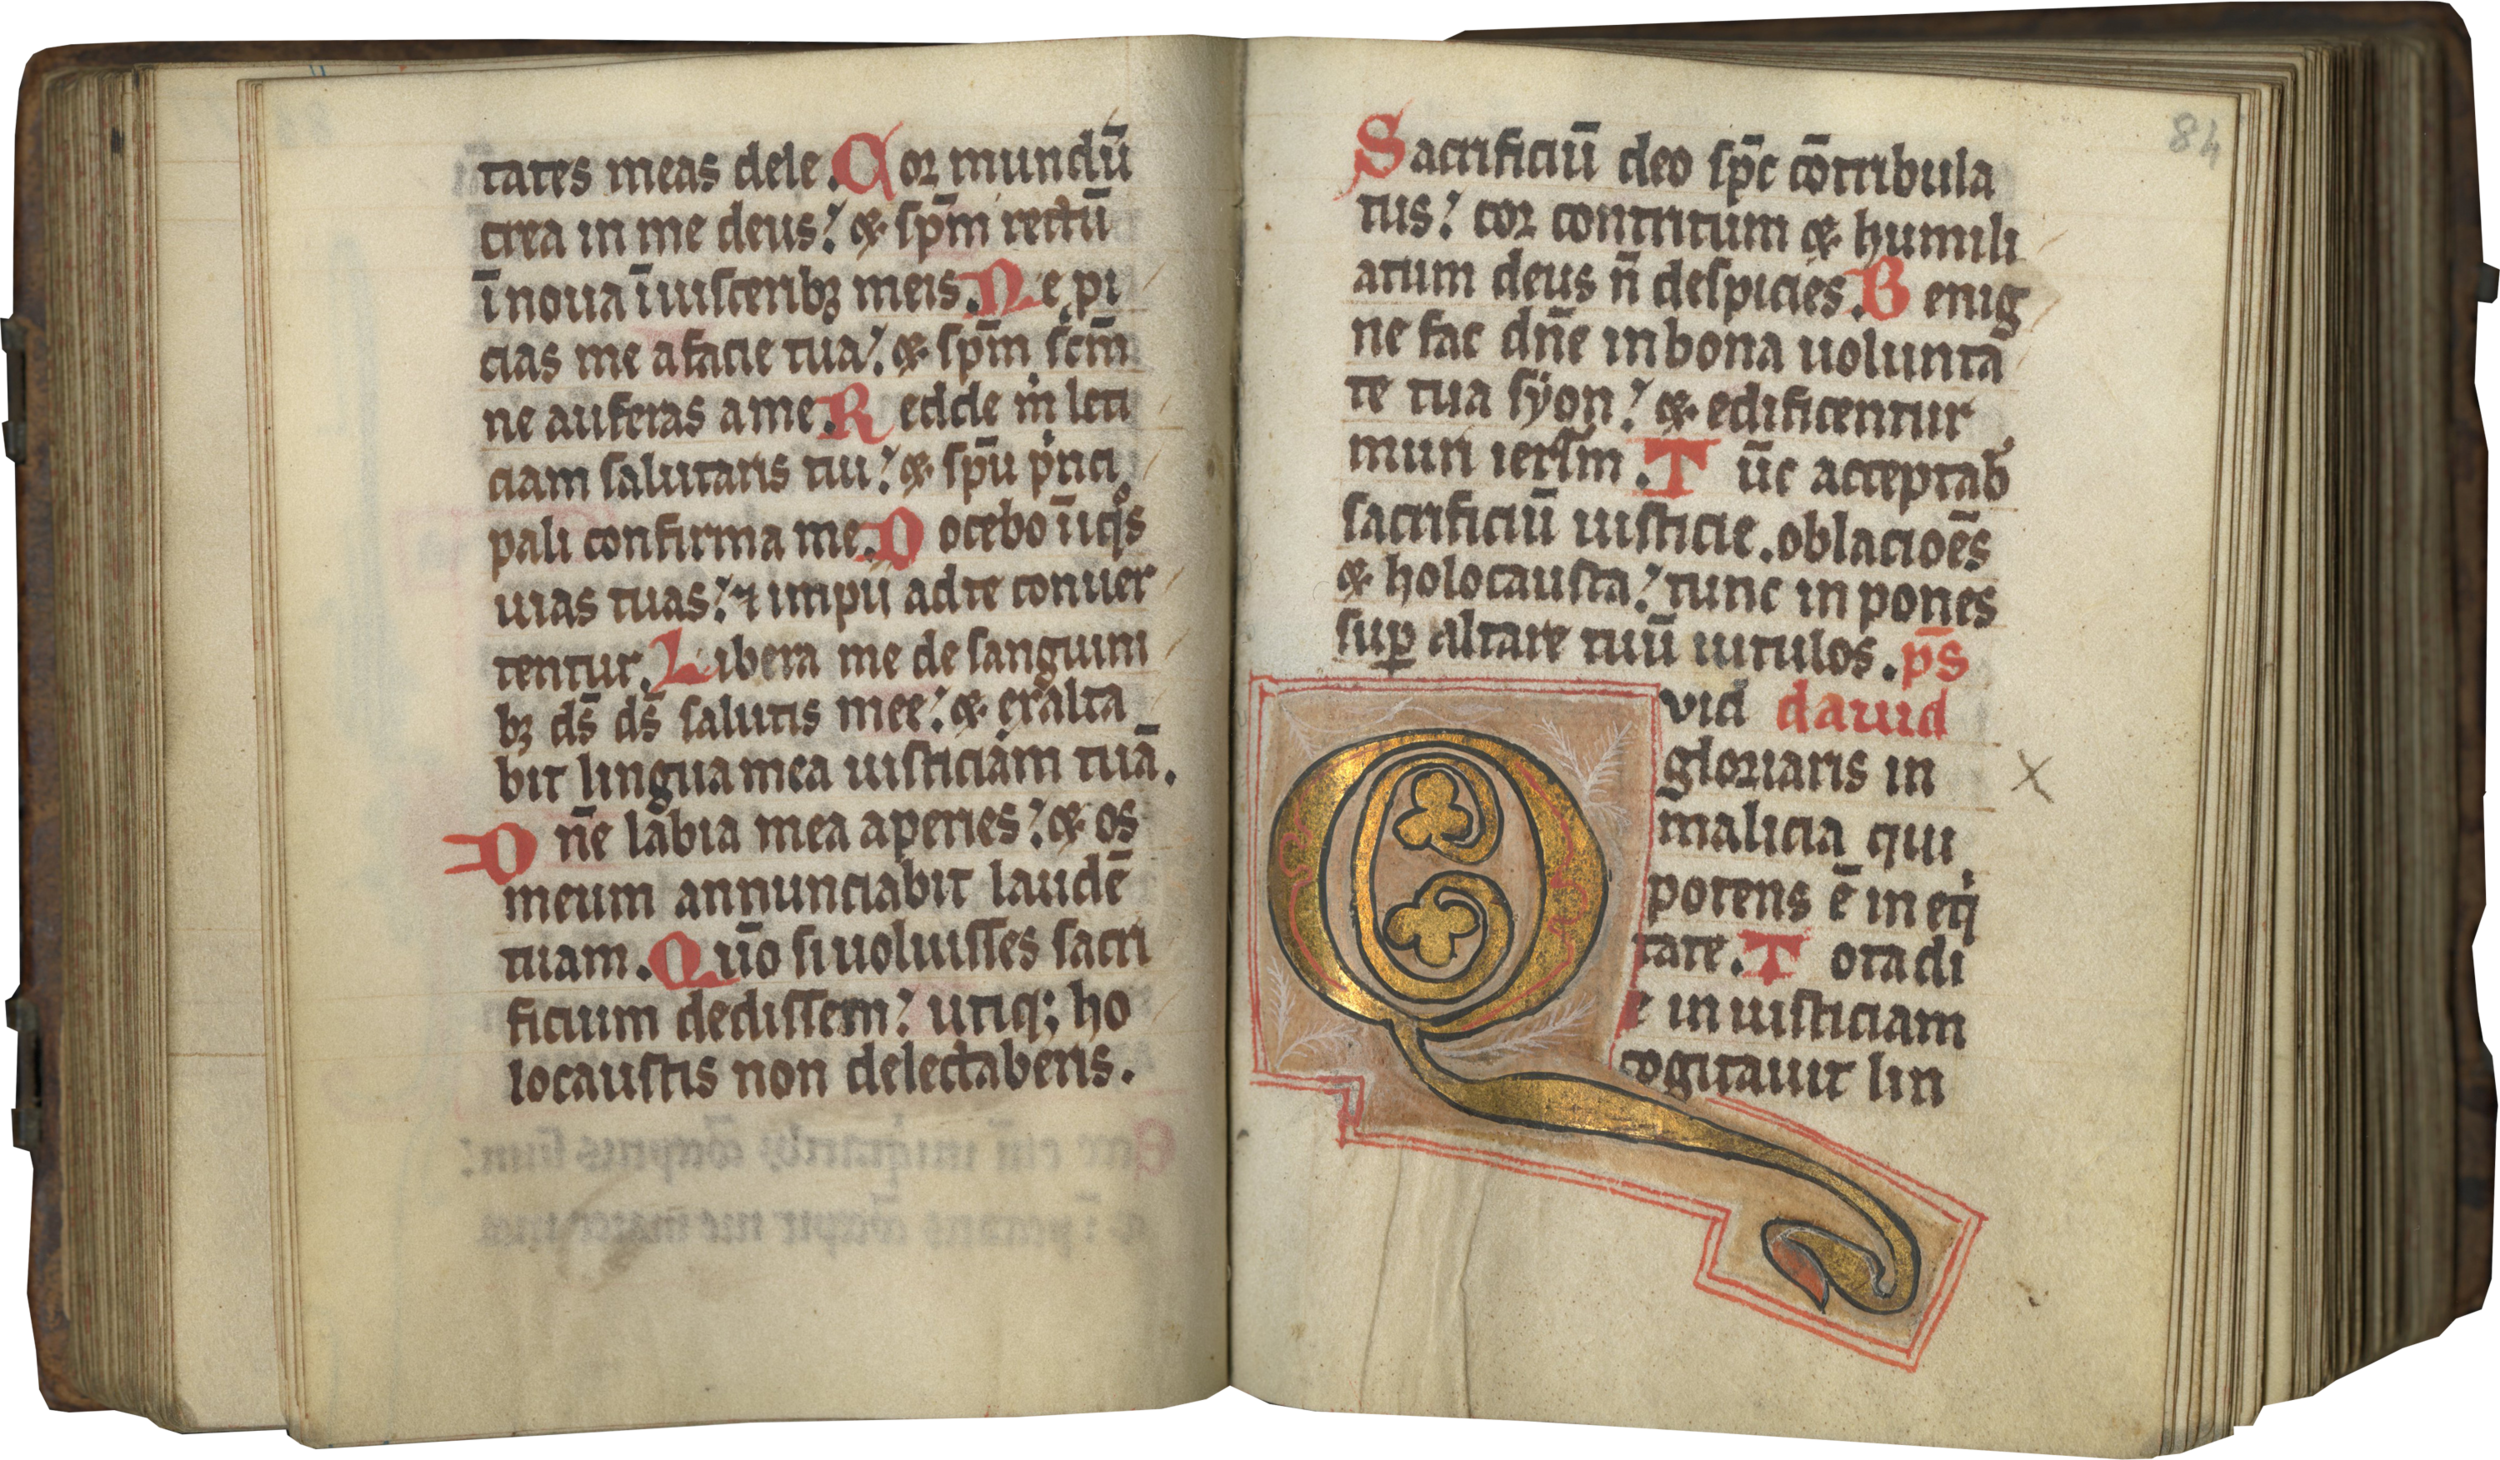 tates meas dele. Cor mundū
crea in me deus: & sp̄m rectū
īnoua īuisceribꝫ meis. Ne pi
cias me a facie tua: & sp̄m sc̄m
ne auferas a me. Redde mͥ leti
ciam salutaris tui: & sp̄u pͥnci
pali confirma me. Docebo īiqͦs
uias tuas: ⁊ impii ad te conuer
tentur. Libera me de sanguini
bꝫ ds̄ ds̄ salutis mee: & exalta
bit lingua mea iusticiam tuā.
Dn̄e labia mea aperies: & os
meum annunciabit laudē
tuam. Qūo si uoluisses sacri
ficium dedissem: utiqꝫ ho
locaustis non delectaberis.
84
Sacrificiū deo sp̄c cōtribula
tus: cor contritum & humili
atum deus n̄ despicies. Benig
ne fac dn̄e in bona uolunta
te tua syon: & edificentur
muri ierl̄m. Tūc acceptab̓
sacrificiū iusticie. oblacioēs
& holocausta: tunc in pones
suꝑ altare tuū uitulos. p̄s
Qvid dauid
gloriaris in
malicia qui
potens ē in eqͥ
tate. Tota di
e in iusticiam
cogitauit lin